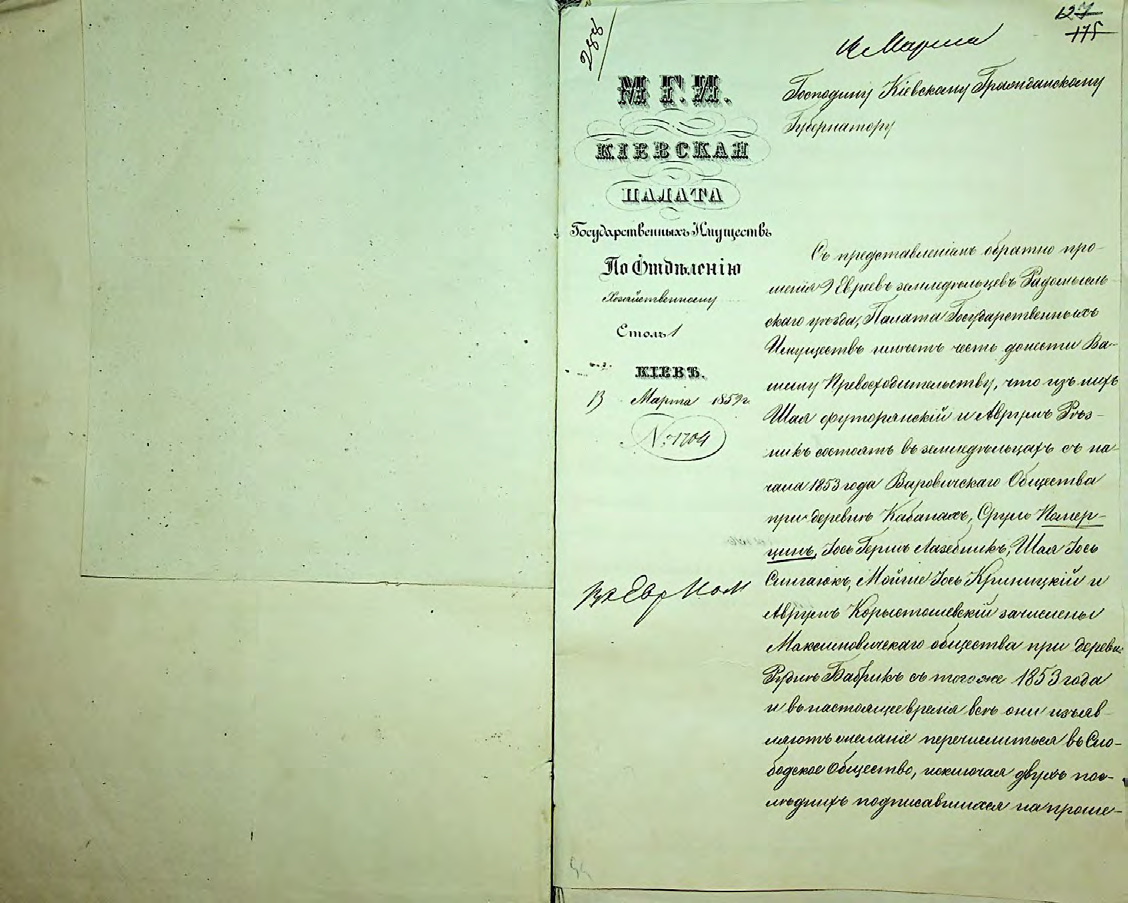 127
175
288
Марта
М Г. И.
КІЕВСКАЯ
ПАЛАТА
Государственныхъ Имуществъ
По Отдѣленію
Хозяйственному
Столъ 1
КІЕВЪ.
13 Марта 1859 г.
№ 1704
Въ Евр Ком
Господину Кіевскому Гражданскому
Губернатору
Съ представленіемъ обратно про-
шенія 9 Евреевъ земледѣльцевъ Радомысль-
скаго уѣзда, Палата Государственныхъ
Имуществъ имѣетъ честь донести Ва-
шему Превосходительству, что изъ нихъ
Шая Футорянскій и Аврумъ Рѣз-
никъ состоятъ въ земледѣльцахъ съ на-
чала 1853 года Варовичскаго Общества
при деревнѣ Кабанахъ, Сруль Помер. -
цинъ, Іось Герш Лазебникъ, Шая Іось
Сингаюкъ, Мойше Іось Криницкій и
Аврумъ Корыстошевскій зачислены
Максимовичскаго общества при деревнѣ
Рудне Бабрикъ съ того же 1853 года
и въ настоящее время всѣ они изъяв-
ляютъ желаніе перечислиться въ Сло-
бодское Общество, исключая двухъ пос-
лѣднихъ подписавшихся на проше-